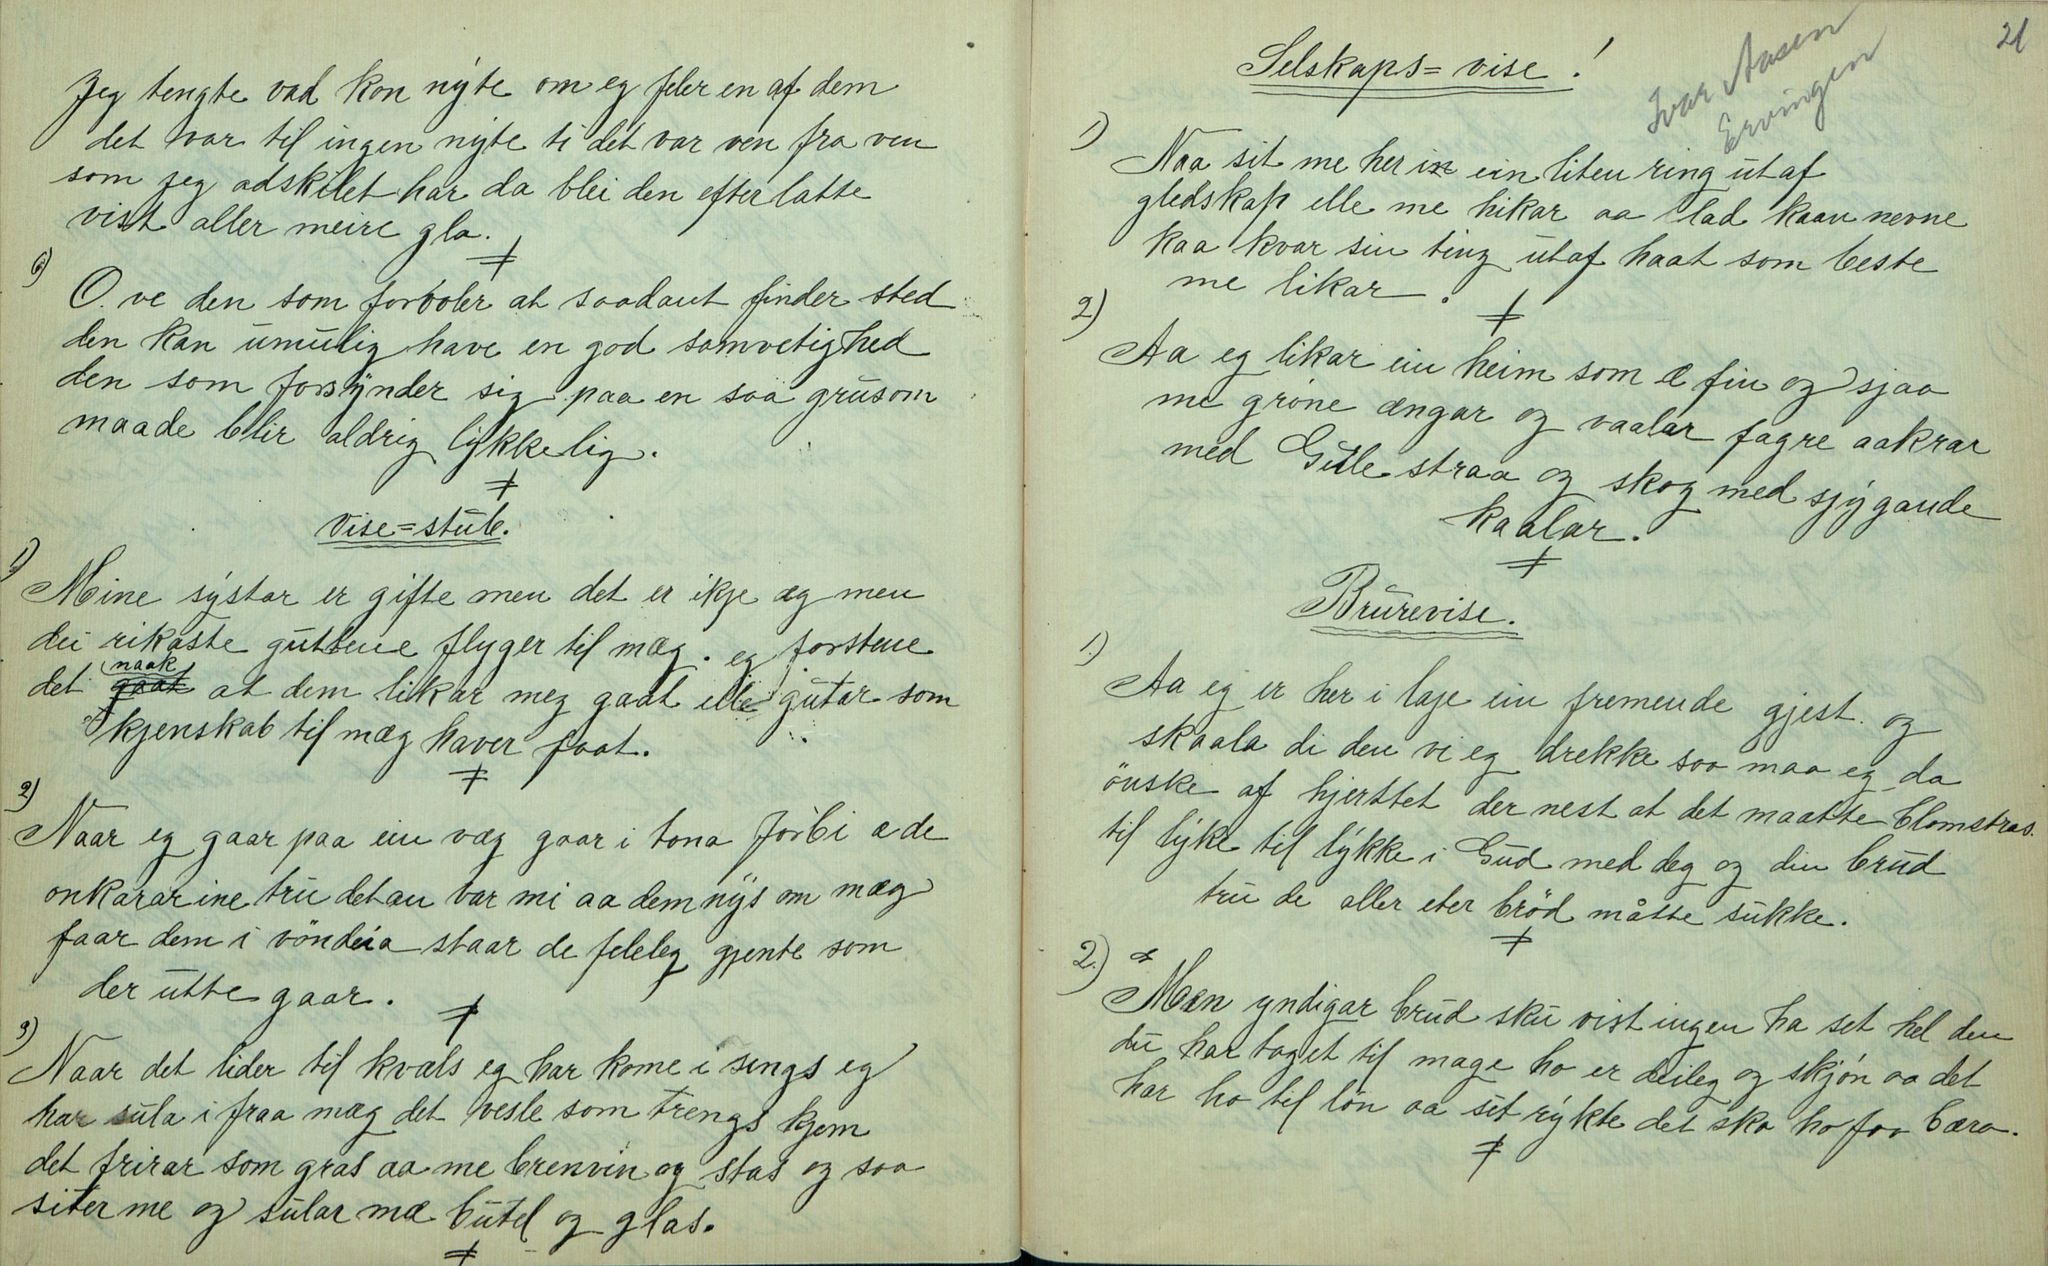 Jeg tengte vad kon nyte om eg feler en af dem
det var til ingen nyte ti det var ven fra ven
som jeg adskilet har da blei den efterlatte
vist aller meire gla.
6)
O. ve den som forvoler at saadant finder sted
den kan umulig have en god samvetighed
den som forsynder sig paa en saa grusom
maade blir aldrig lykkelig.
Vise=stub.
1)
Mine systar er gifte men det er ikje æg men
dei rikaste guttene flyger til mæg. eg forstene
naak
det gaat at dem likar meg gaat elle gutar som
kjenskab til mæg haver faat.
2)
Naar eg gaar paa ein væg gaar i tona forbi æ de
onkarar ine tru det an var mi aa dem nys om mæg
faar dem i vöndeia staar de feleleg gjente som
der utte gaar.
3)
Naar det lider til kvæls eg har kome i sengs eg
har sula i fraa mæg det vesle som trengs kjem
det frirar som gras aa me brenvin og stas og saa
siter me og sular mæ butel og glas.
21
Selskaps=vise!
Ivar Aasen
Ervingen
1)
Naa sit me her in ein liten ring ut af
gledskap elle me hikar aa lad kaan nevne
kaa kvar sin ting ut af haat som beste
me likar.
2)
Aa eg likar ein heim som æ fin og sjaa
me gröne ængar og vaalar fagre aakrar
med Gule straa og skog med sjygande
kaalar.
Brurevise.
1)
Aa eg er her i laje ein fremende gjest og
skaala di den vi eg drekke saa maa eg da
önske af hjerttet der nest at det maatte blomstras.
til lyke til lykke i Gud med deg og din brud
tru de aller eter bröd måtte sukke.
2.)
Men yndigar brud sku vist ingen ha set hel den
du har taget til mage ho er deileg og skjön aa det
har ho til lön aa set rykte det ska ho faa bæra.